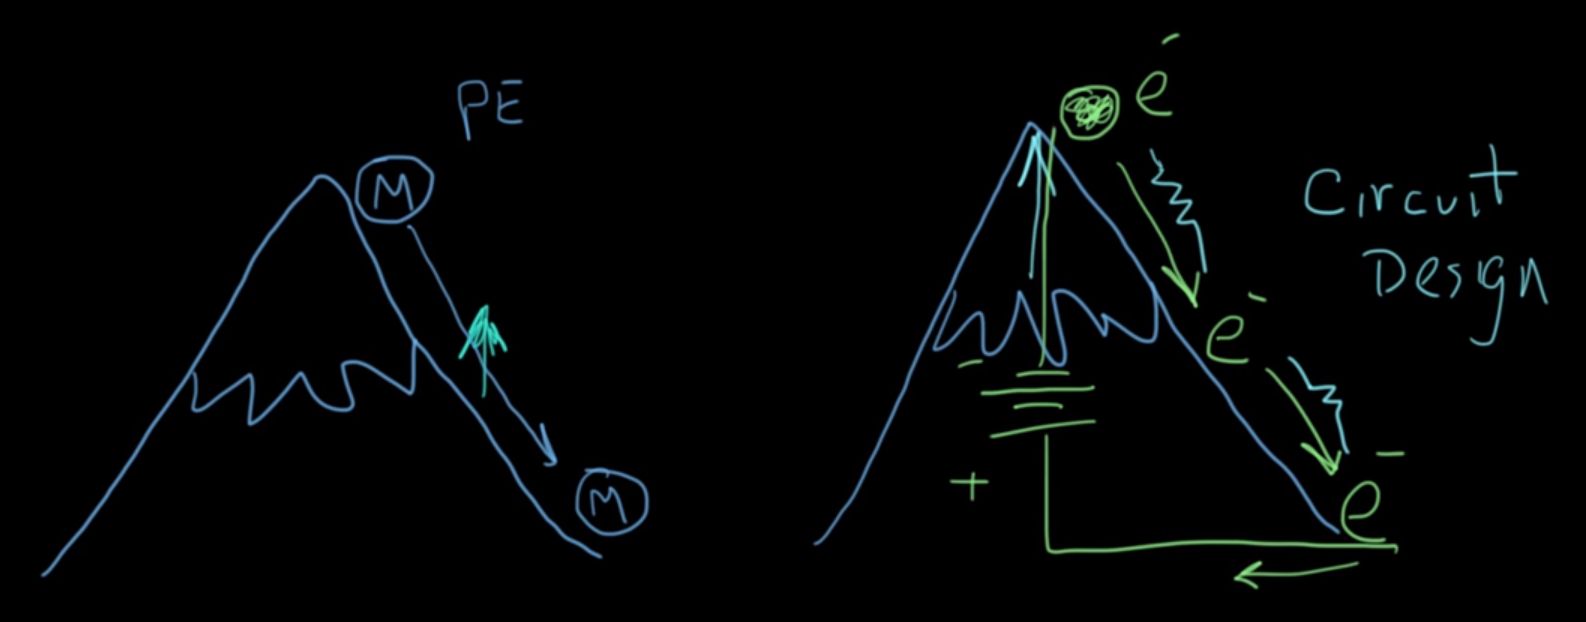 PE
M
M
e-
Circuit
Design
e-
-
+
e-